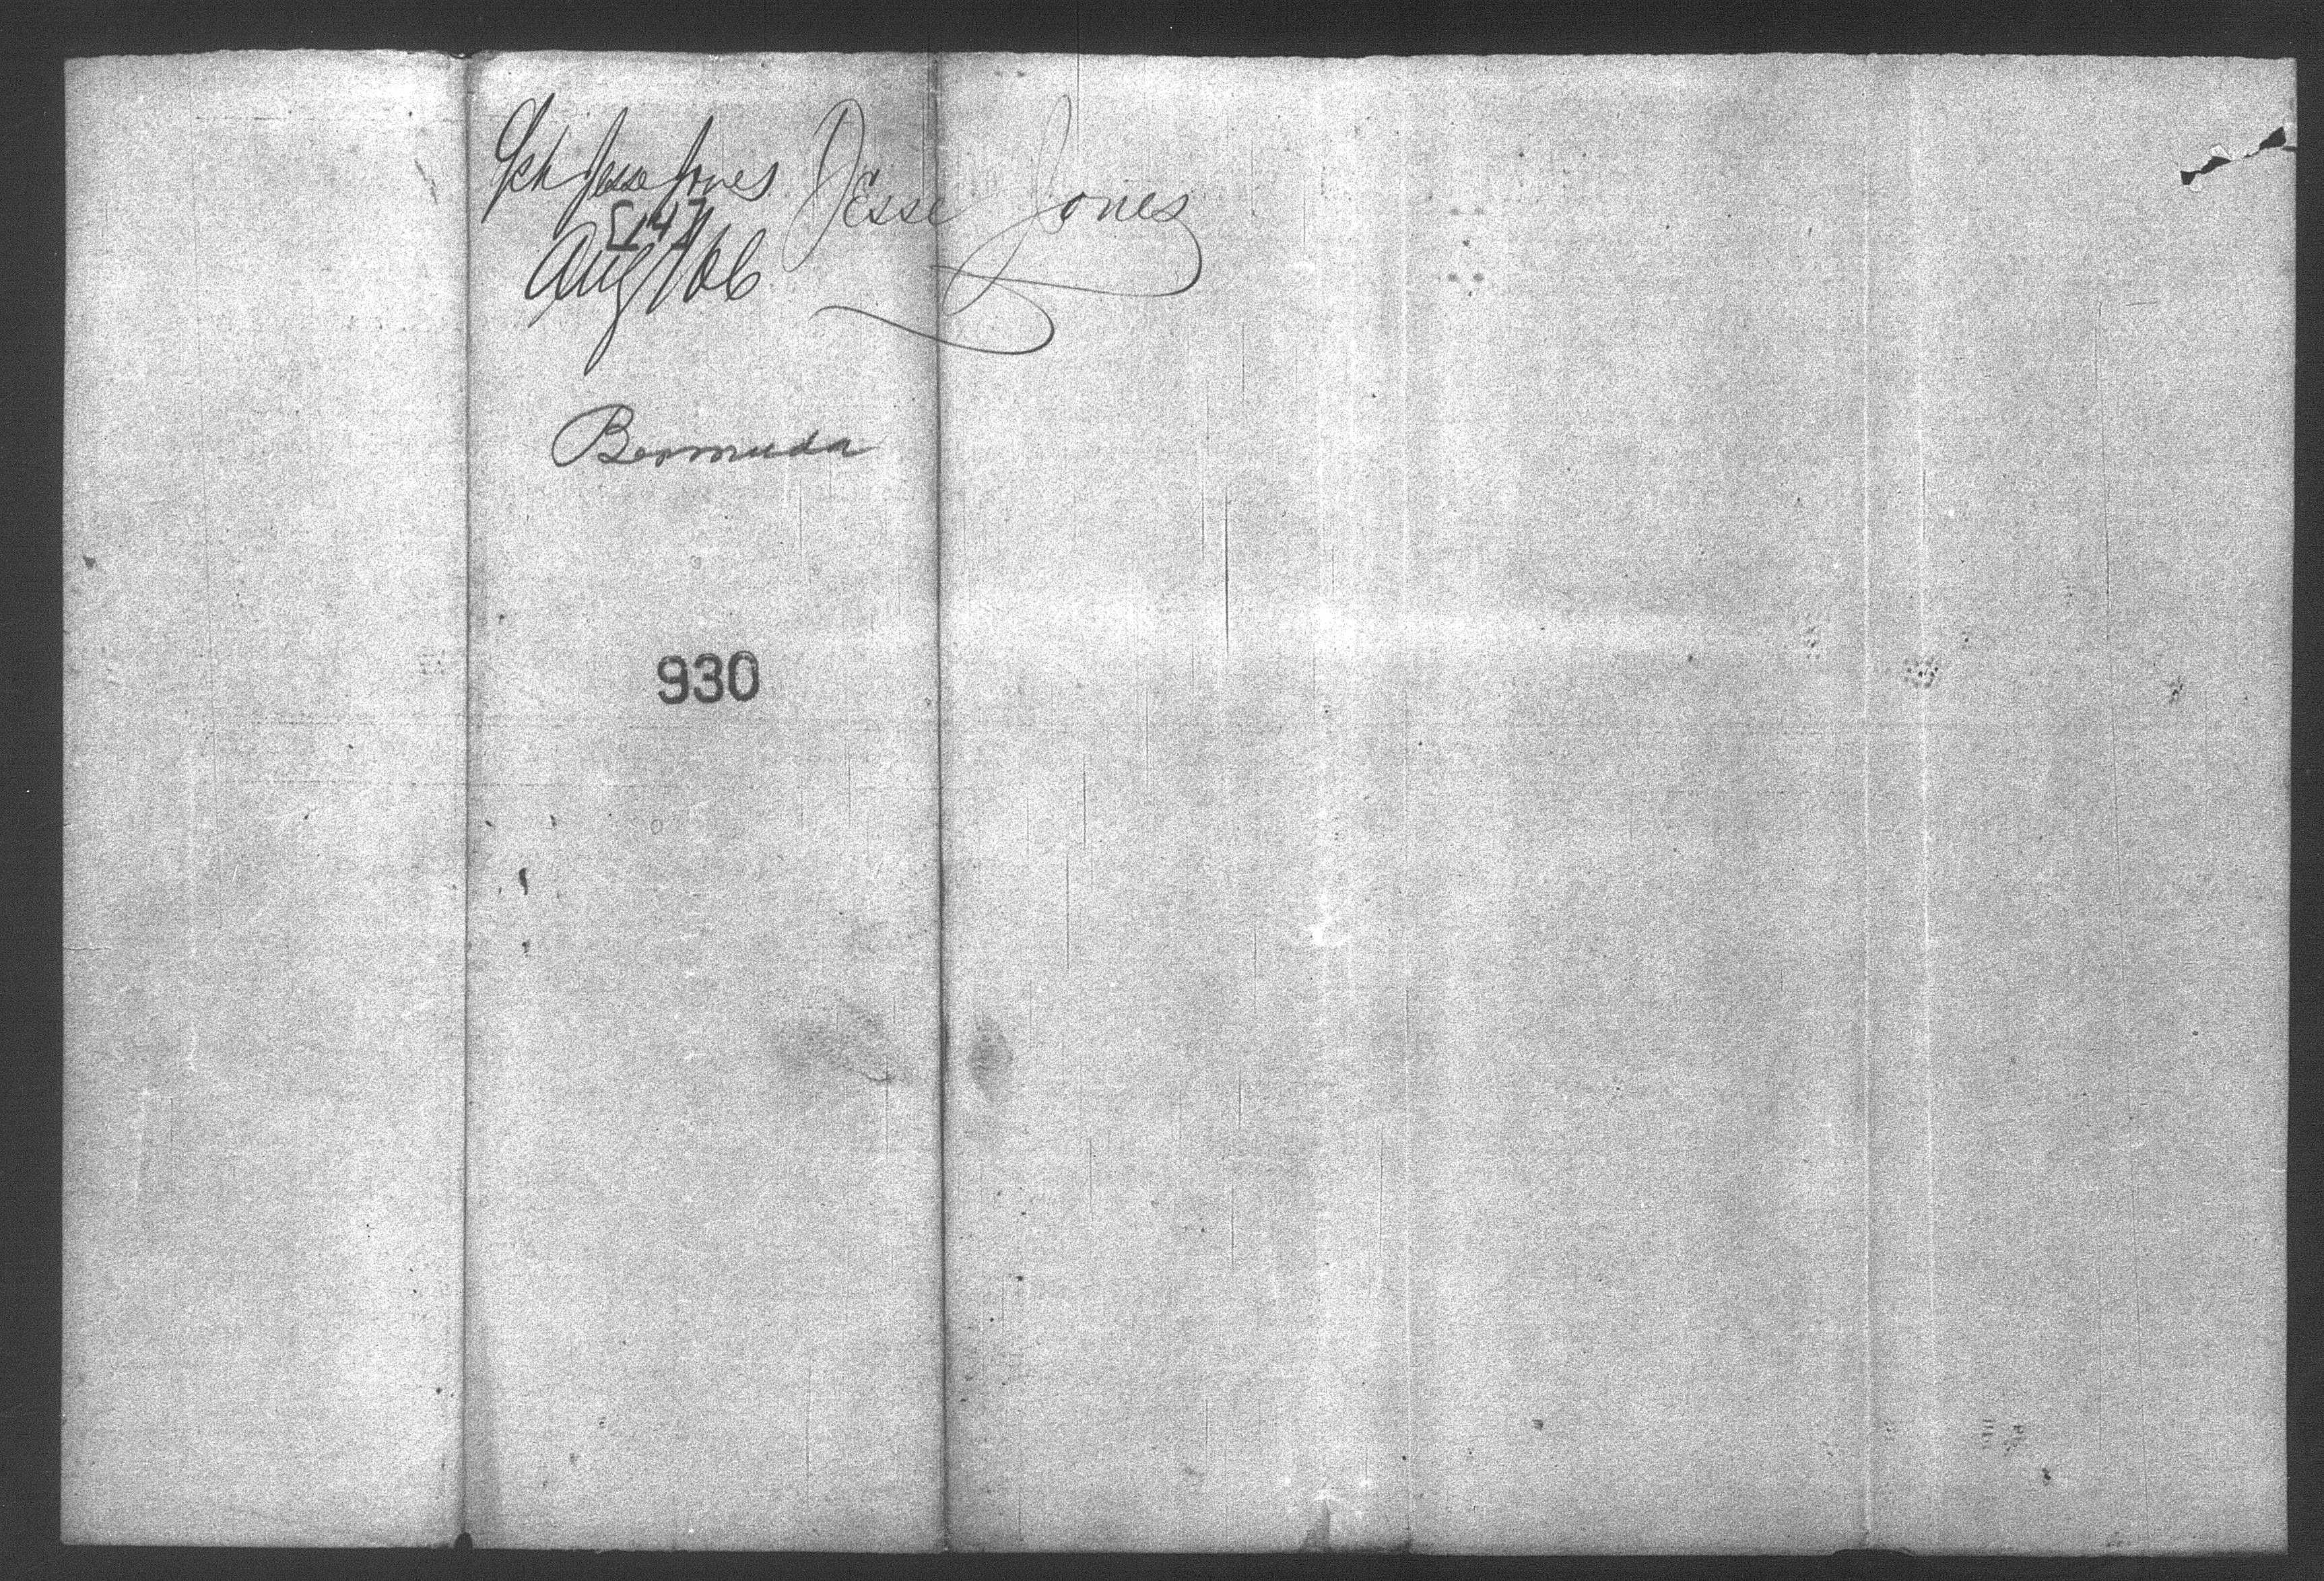 Sch Jesse Jones
5147
Aug 7/06
Jesse Jones
Bermuda
930